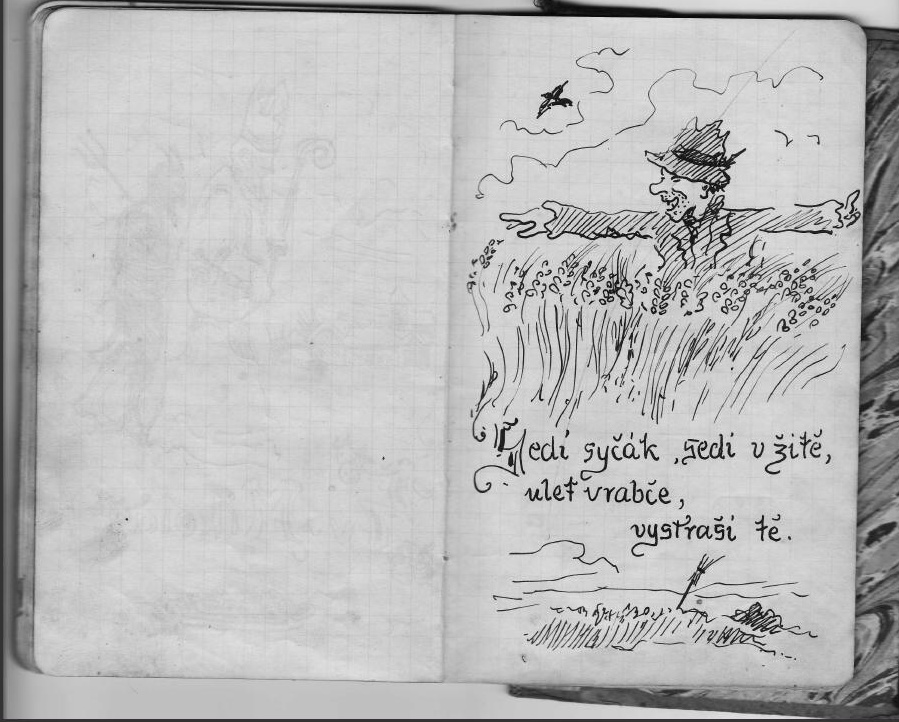 Sedí syčák ,sedí v žitě,
uleť vrabče,
vystraší tě.